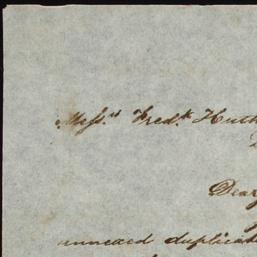 Mess.rs Fred.k Huth
Dear
annexed duplicate